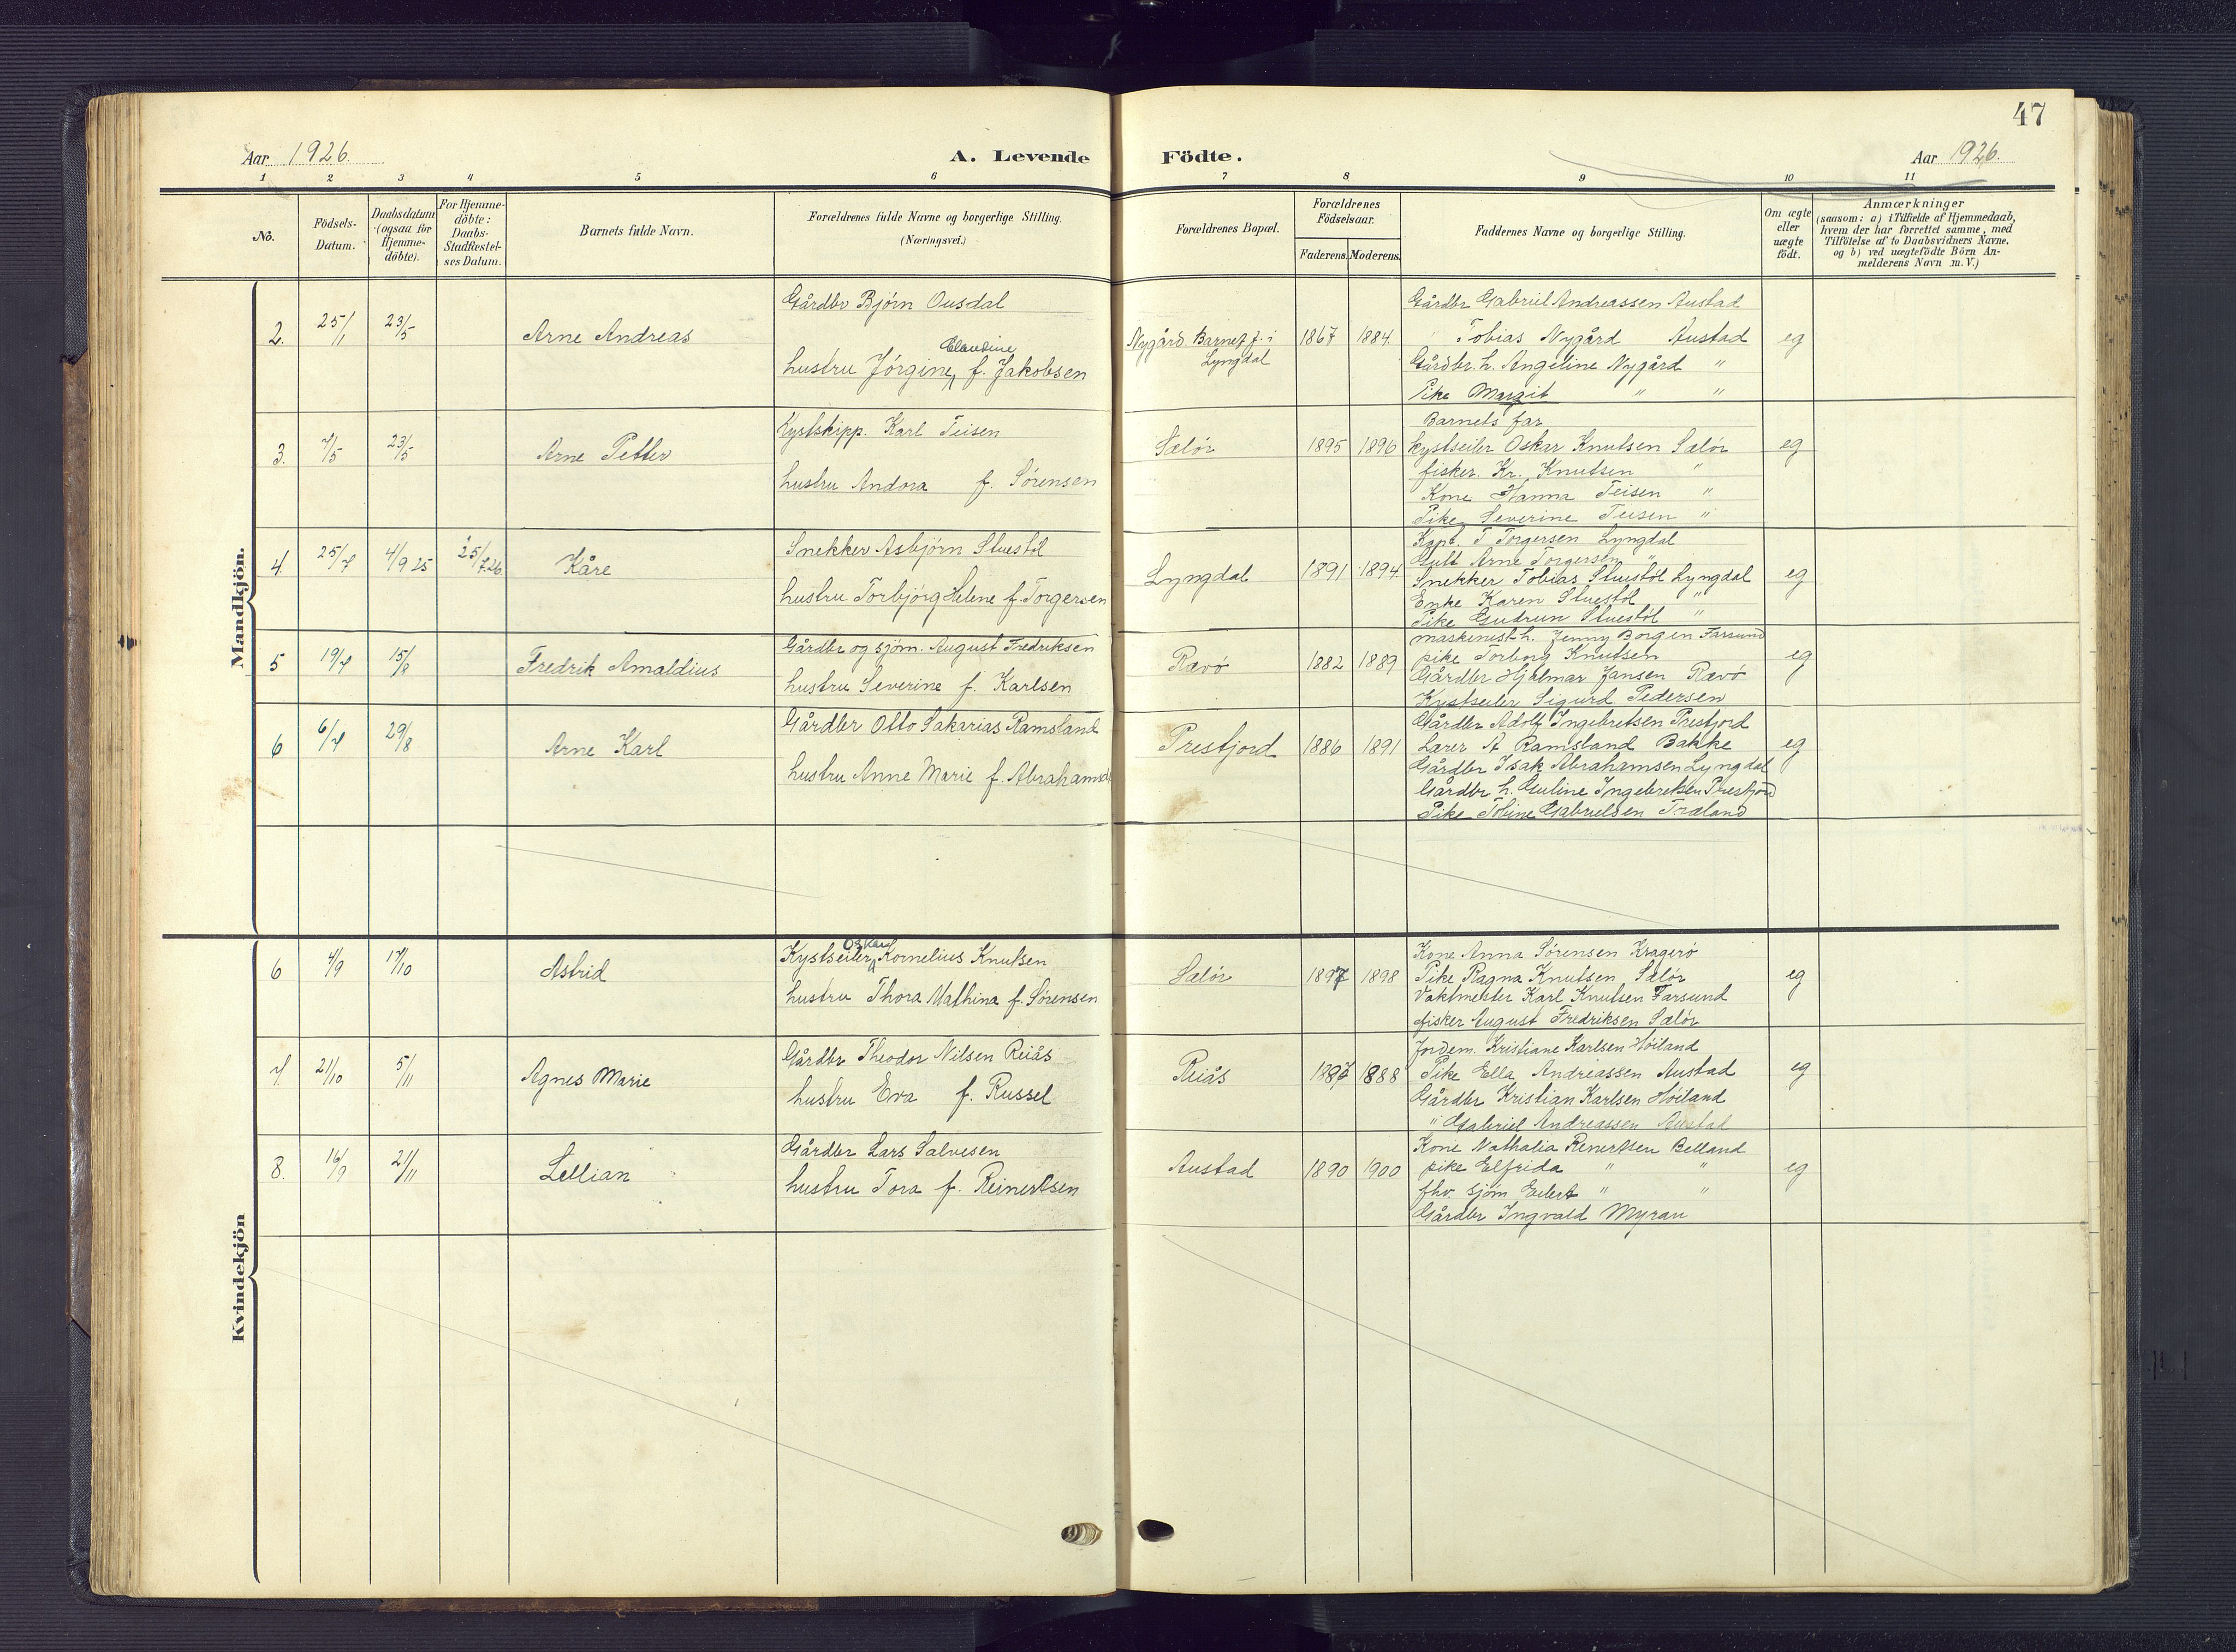 47
Aar 1926.
A. Levende Födte.
Aar 1926.
1 2 3 4 5 6 7 8 9 10 11
No.
Födsels-
Datum.
Daabsdatum
(ogsaa for
Hjemme-
döbte).
For Hjemme-
döbte:
Daabs-
Stadfæstel-
ses Datum.
Barnets fulde Navn.
Forældrenes fulde Navne og borgerlige Stilling.
(Næringsvei.)
Forældrenes Bopæl.
Forældrenes
Födselsaar.
Faderens. Moderens.
Faddernes Navne og borgerlige Stilling.
Om ægte
eller
uægte
födt.
Anmærkninger
(saasom: a) i Tilfælde af Hjemmedaab,
hvem der har forrettet samme, med
Tilföielse af to Daabsvidners Navne.
og b) ved uægtefödte Börn An-
melderens Navn m. V.)
Mandkjön.
2. 25/1 23/5 Arne Andreas
Gårdbr Bjørn Ousdal
Claudine
hustru Jórgine, f. Jakobsen
Nygård Barnet f. i
Lyngdal
1867 1884
Gårdbr Gabriel Andreassen Austad
" Tobias Nygård Austad
Gårdbr. h. Angeline Nygård "
Pike Margit " "
eg
3. 7/5 23/5 Arne Petter
Kystskipp. Karl Teisen
hustru Andora f. Sórensen
Sælór
1895 1896
Barnets far
kystseiler Oskar Knutsen Sælór
fisker. Kr. Knutsen "
Kone Hanna Teisen "
Pike Severine Teisen "
eg
4. 25/7 4/9 25 25/7.26. Kåre
Snekker Asbjórn Stuestól
hustru Torbjórg Helene f. Torgersen
Lyngdal
1891 1894
Kapt. T Torgersen Lyngdal
Gutt Arne Torgersen "
Snekker Tobias Stuestól Lyngdal
Enke Karen Stuestól "
Pike Gudrun Stuestól "
eg
5 19/7 15/8 Fredrik Amaldius
Gårdbr og sjóm. August Fredriksen
hustru Severine f. Karlsen
Rævó
1882 1889
maskinist h. Jenny Borgen Farsund
pike Torborg Knutsen
Gårdbr Hjalmar Jansen Rævó
Kystseiler Sigurd Pedersen
eg
6 6/7 29/8 Arne Karl
Gårdbr Otto Sakarias Ramsland
hustru Anne Marie f. Abrahamsen
Prestjord
1886 1891
Gårdbr Adolf Ingebretsen Prestjord
Lærer A Ramsland Bakke
Gårdbr Isak Abrahamsen Lyngdal
Gårdbr h. Guline Ingebretsen Prestjord
Pike Tobine Gabrielsen Træland
eg
Kvindekjön
6 4/9 17/10 Astrid
Oskar
Kystseiler, Kornelius Knutsen
hustru Thora Mathina f. Sórensen
Sælór
1897 1898
Kone Anna Sórensen Krageró
Pike Ragna Knutsen Sælór
Vaktmester Karl Knutsen Farsund
fisker August Fredriksen Sælór
eg
7. 21/10 5/11 Agnes Marie
Gårdbr Theodor Nilsen Reiås
hustru Eva f. Russel
Reiås
1887 1888
Jordem. Kristiane Karlsen Hóiland
Pike Ella Andreassen Austad
Gårdbr Kristian Karlsen Hóiland
" Gabriel Andreassen Austad
eg
8. 16/9 21/11 Lellian
Gårdbr Lars Salvesen
hustru Tora f. Reinertsen
Austad
1890 1900
Kone Nathalia Reinertsen Belland
pike Elfrida " "
fhv. sjóm Eilert " "
Gårdbr Ingvald Myran
eg